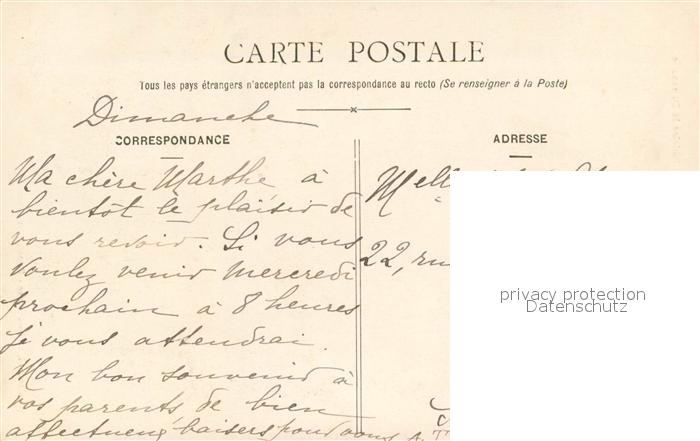 CARTE POSTALE
Tous les pays étrangers n'acceptent pas la correspondance au recto (Se renseigner à la Poste)
Dimanche
CORRESPONDANCE
ADRESSE
Ma chère Marthe à
bientôt le plaisir de
vous revoir. Si vous
voulez venir mercredi
prochain à 8 heures
je vous attendrai.
Mon bon souvenir à
vos parents de bien
affectueux baisers pour vous
Melle
22, ru
privacy protection
Datenschutz